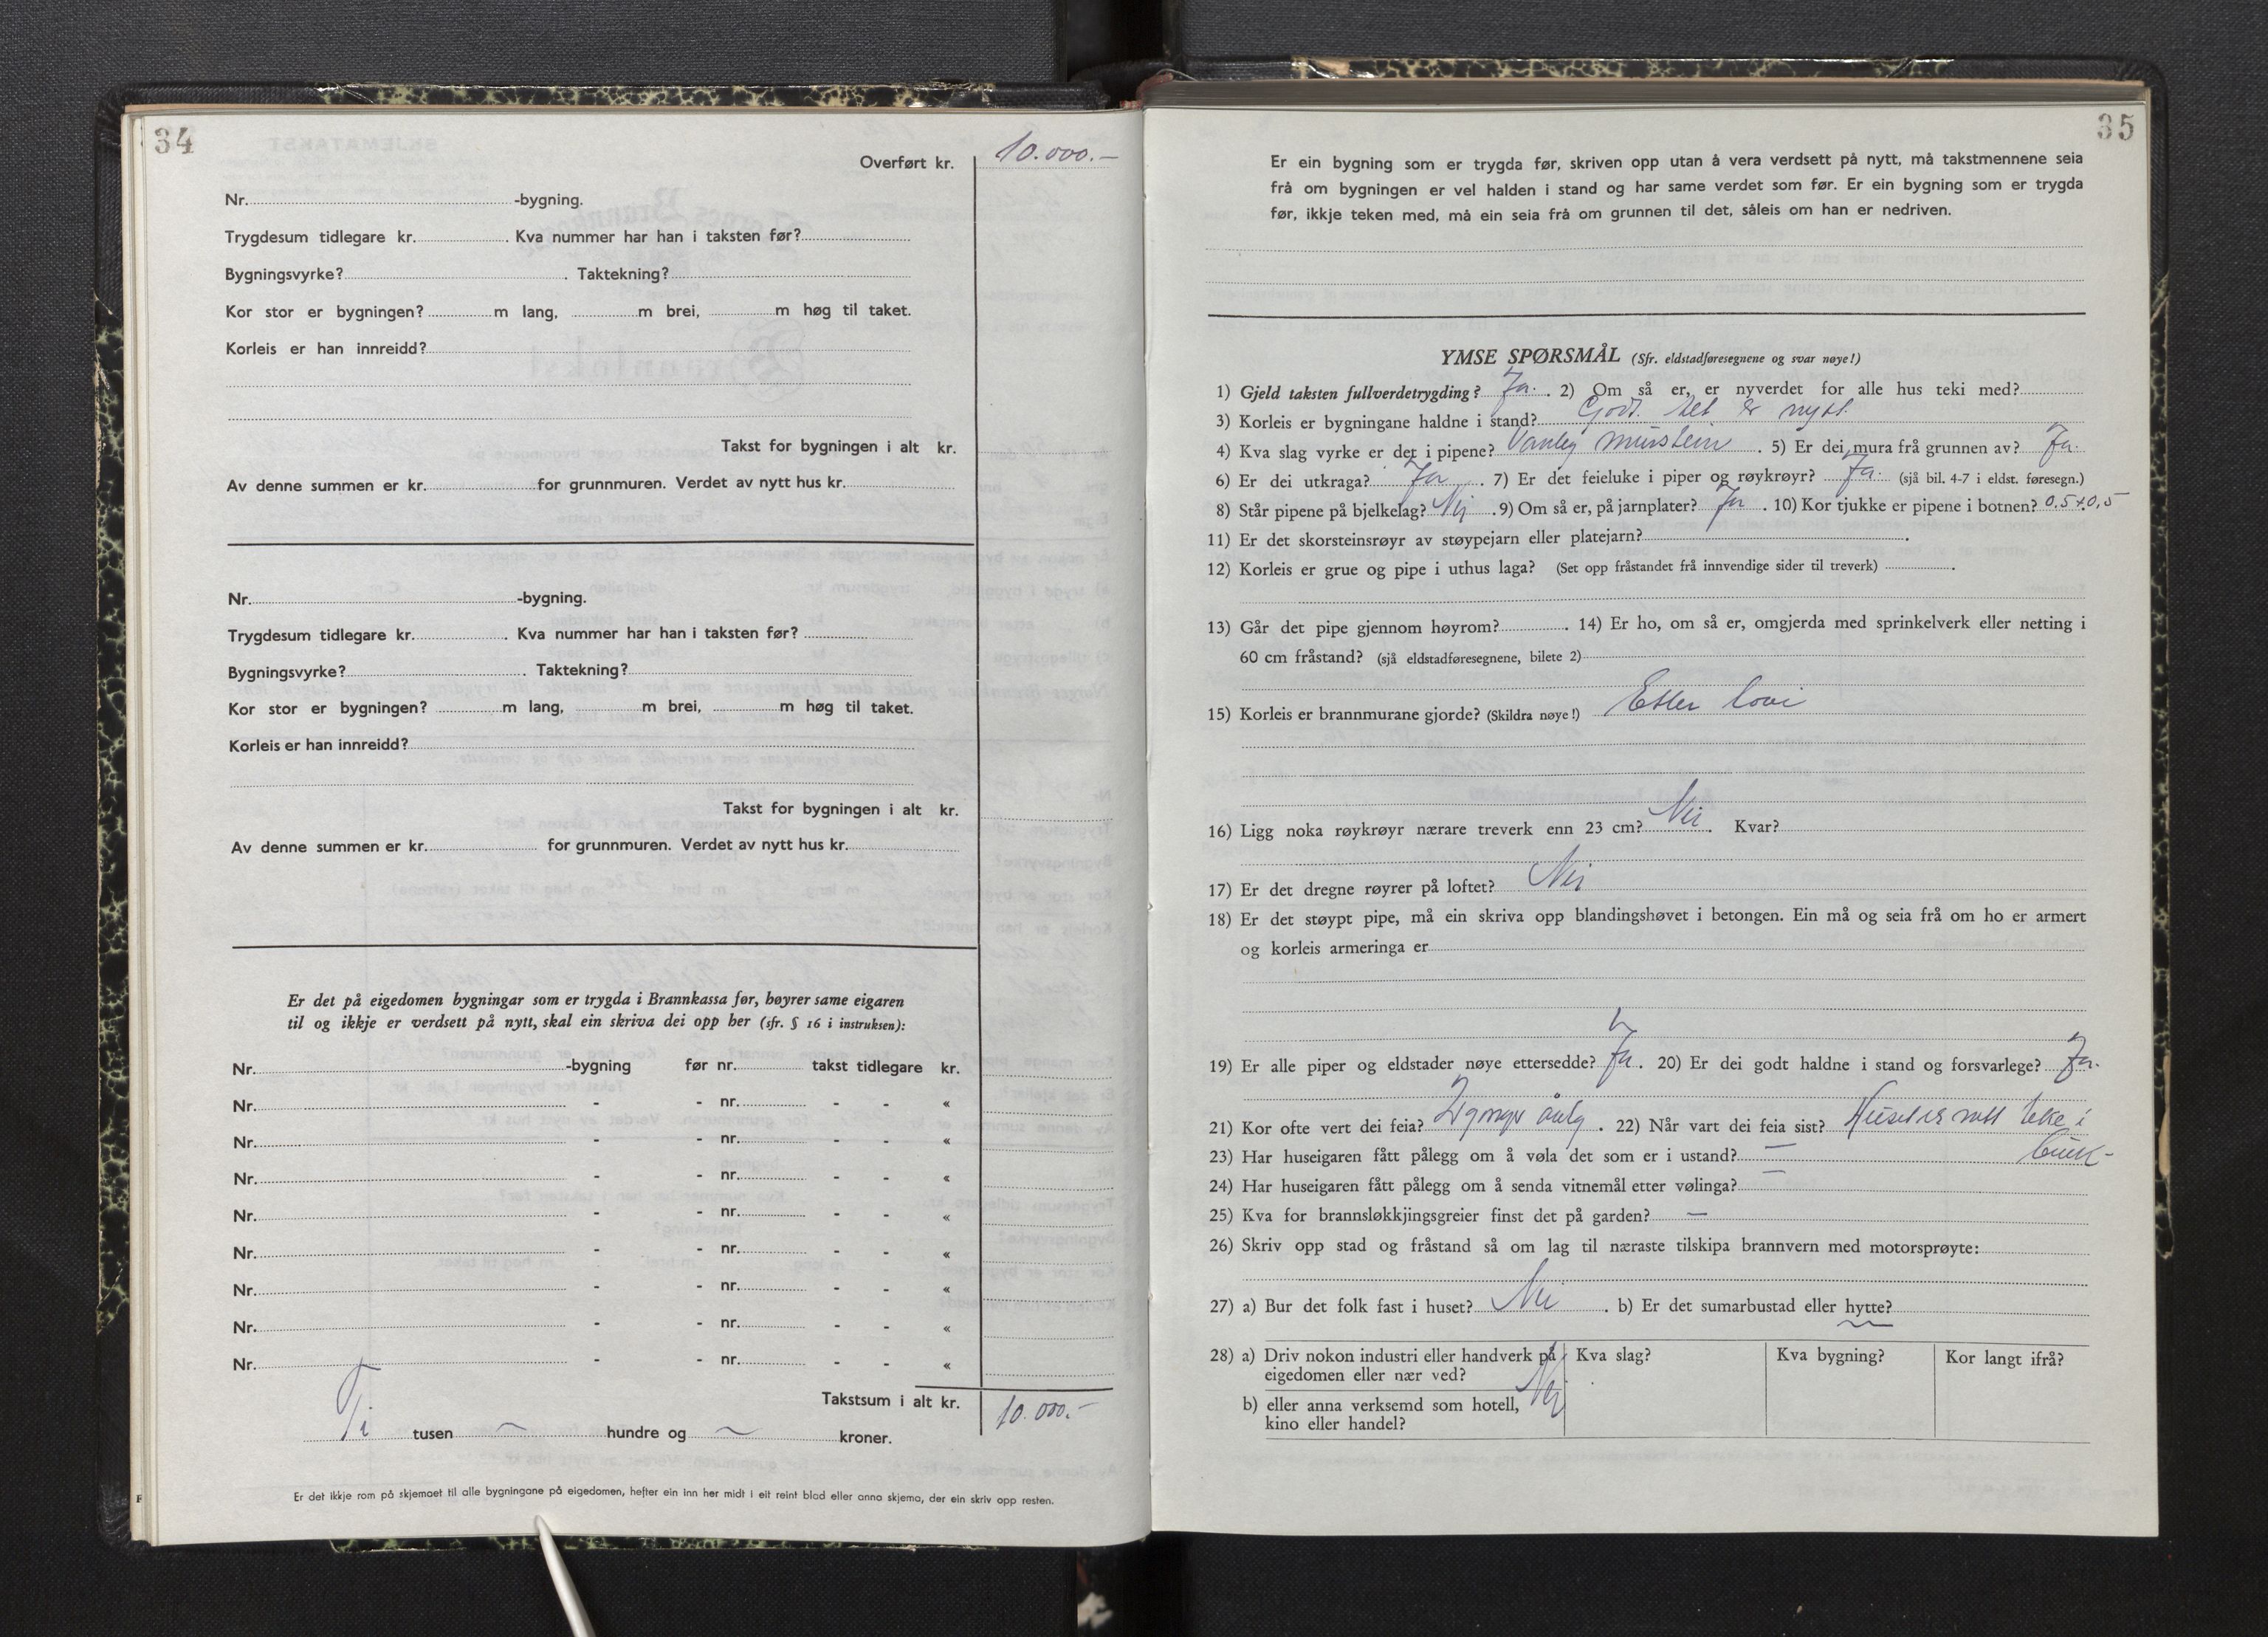 34
Overført kr. 10.000.-
Nr. -bygning.
Trygdesum tidlegare kr. . Kva nummer har han i taksten før?
Bygningsvyrke? . Taktekning?
Kor stor er bygningen? m lang, m brei, m høg til taket.
Korleis er han innreidd?
Takst for bygningen i alt kr.
Av denne summen er kr. for grunnmuren. Verdet av nytt hus kr.
Nr. -bygning.
Trygdesum tidlegare kr. . Kva nummer har han i taksten før?
Bygningsvyrke? . Taktekning?
Kor stor er bygningen? m lang, m brei, m høg til taket.
Korleis er han innreidd?
Takst for bygningen i alt kr.
Av denne summen er kr. for grunnmuren. Verdet av nytt hus kr.
Er det på eigedomen bygningar som er trygda i Brannkassa før, høyrer same eigaren
til og ikkje er verdsett på nytt, skal ein skriva dei opp her (sfr. § 16 i instruksen):
Nr. -bygning før nr. takst tidlegare kr.
Nr. - - nr. - - «
Nr. - - nr. - - «
Nr. - - nr. - - «
Nr. - - nr. - - «
Nr. - - nr. - - «
Nr. - - nr. - - «
Nr. - - nr. - - «
Nr. - - nr. - - «
Takstsum i alt kr. 10.000.-
Ti tusen ~ hundre og ~ kroner.
Er det ikkje rom på skjemaet til alle bygningane på eigedomen, hefter ein inn her midt i eit reint blad eller anna skjema, der ein skriv opp resten.
35
Er ein bygning som er trygda før, skriven opp utan å vera verdsett på nytt, må takstmennene seia
frå om bygningen er vel halden i stand og har same verdet som før. Er ein bygning som er trygda
før, ikkje teken med, må ein seia frå om grunnen til det, såleis om han er nedriven.
YMSE SPØRSMÅL (Sfr. eldstadføresegnene og svar nøye!)
1) Gjeld taksten fullverdetrygding? Ja. . 2) Om så er, er nyverdet for alle hus teki med?
3) Korleis er bygningane haldne i stand? Godt. det er nytt.
4) Kva slag vyrke er det i pipene? Vanleg murstein . 5) Er dei mura frå grunnen av? Ja.
6) Er dei utkraga? Ja . 7) Er det feieluke i piper og røykrøyr? Ja. (sjå bil. 4-7 i eldst. føresegn.)
8) Står pipene på bjelkelag? Nei . 9) Om så er, på jarnplater? Ja . 10) Kor tjukke er pipene i botnen? 0,5+0,5
11) Er det skorsteinsrøyr av støypejarn eller platejarn? .
12) Korleis er grue og pipe i uthus laga? (Set opp fråstandet frå innvendige sider til treverk) .
13) Går det pipe gjennom høyrom? . 14) Er ho, om så er, omgjerda med sprinkelverk eller netting i
60 cm fråstand? (sjå eldstadføresegnene, bilete 2)
15) Korleis er brannmurane gjorde? (Skildra nøye!) Etter lovi
16) Ligg noka røykrøyr nærare treverk enn 23 cm? Nei . Kvar?
17) Er det dregne røyrer på loftet? Nei
18) Er det støypt pipe, må ein skriva opp blandingshøvet i betongen. Ein må og seia frå om ho er armert
og korleis armeringa er
19) Er alle piper og eldstader nøye ettersedde? Ja . 20) Er dei godt haldne i stand og forsvarlege? Ja.
21) Kor ofte vert dei feia? 2 gonger årlig . 22) Når vart dei feia sist? Huset er nett teke i
bruk-
23) Har huseigaren fått pålegg om å vøla det som er i ustand? —
24) Har huseigaren fått pålegg om å senda vitnemål etter vølinga? —
25) Kva for brannsløkkjingsgreier finst det på garden? —
26) Skriv opp stad og fråstand så om lag til næraste tilskipa brannvern med motorsprøyte:
27) a) Bur det folk fast i huset? Nei . b) Er det sumarbustad eller hytte?
28) a) Driv nokon industri eller handverk på Kva slag? Kva bygning? Kor langt ifrå?
eigedomen eller nær ved? Nei
b) eller anna verksemd som hotell,
kino eller handel?